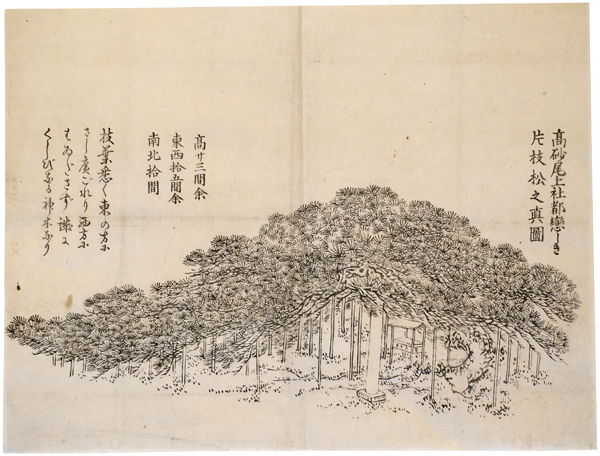 高砂尾上社都戀しき
片枝松之真圖
高廿三間余
東西拾五間余
南北拾間
枝葉悉く東の方に
さし廣ごれり西方に
くしびなる神木なり